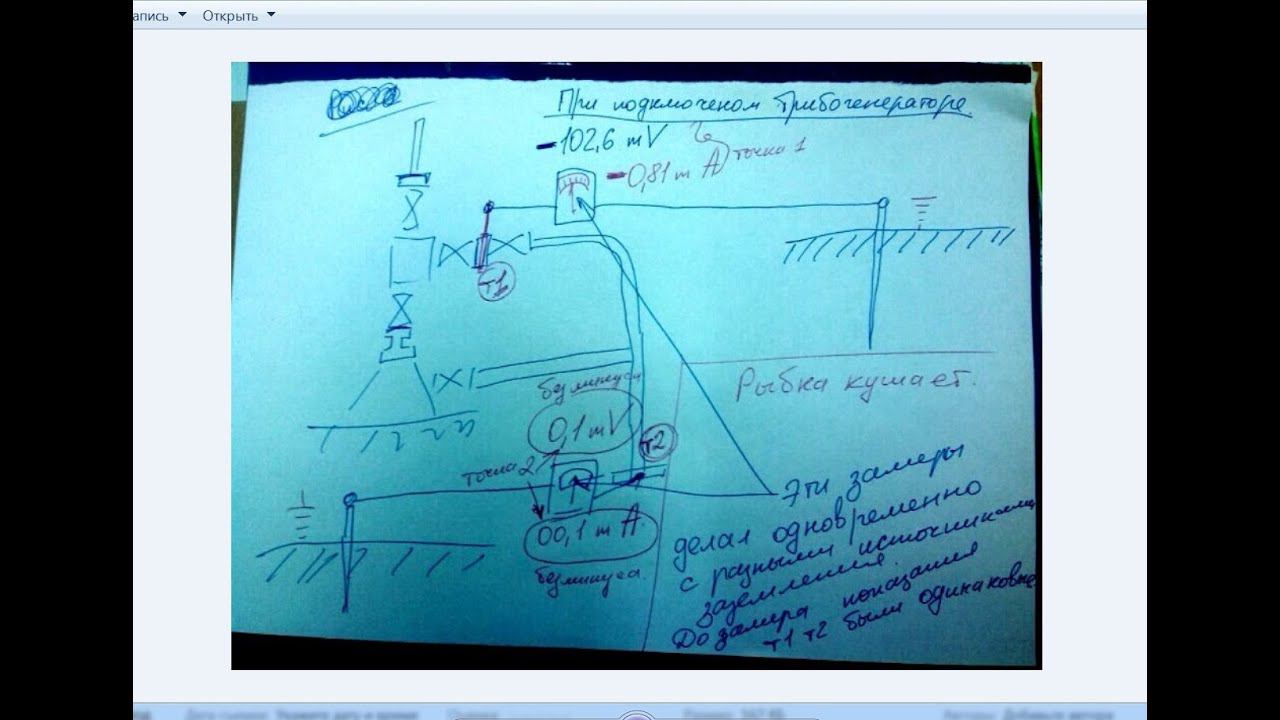 апись Открыть
При подключеном Трибогенераторе
-102,6 mV
-0,81 m A точка 1
T1
Рыбка кушает.
без минуса
0,1 mV
T2
точка 2
00,1 m A
без минуса
Эти замеры
делал одновременно
с разными источниками
заземления.
До замера показания
T1 T2 были одинаковые